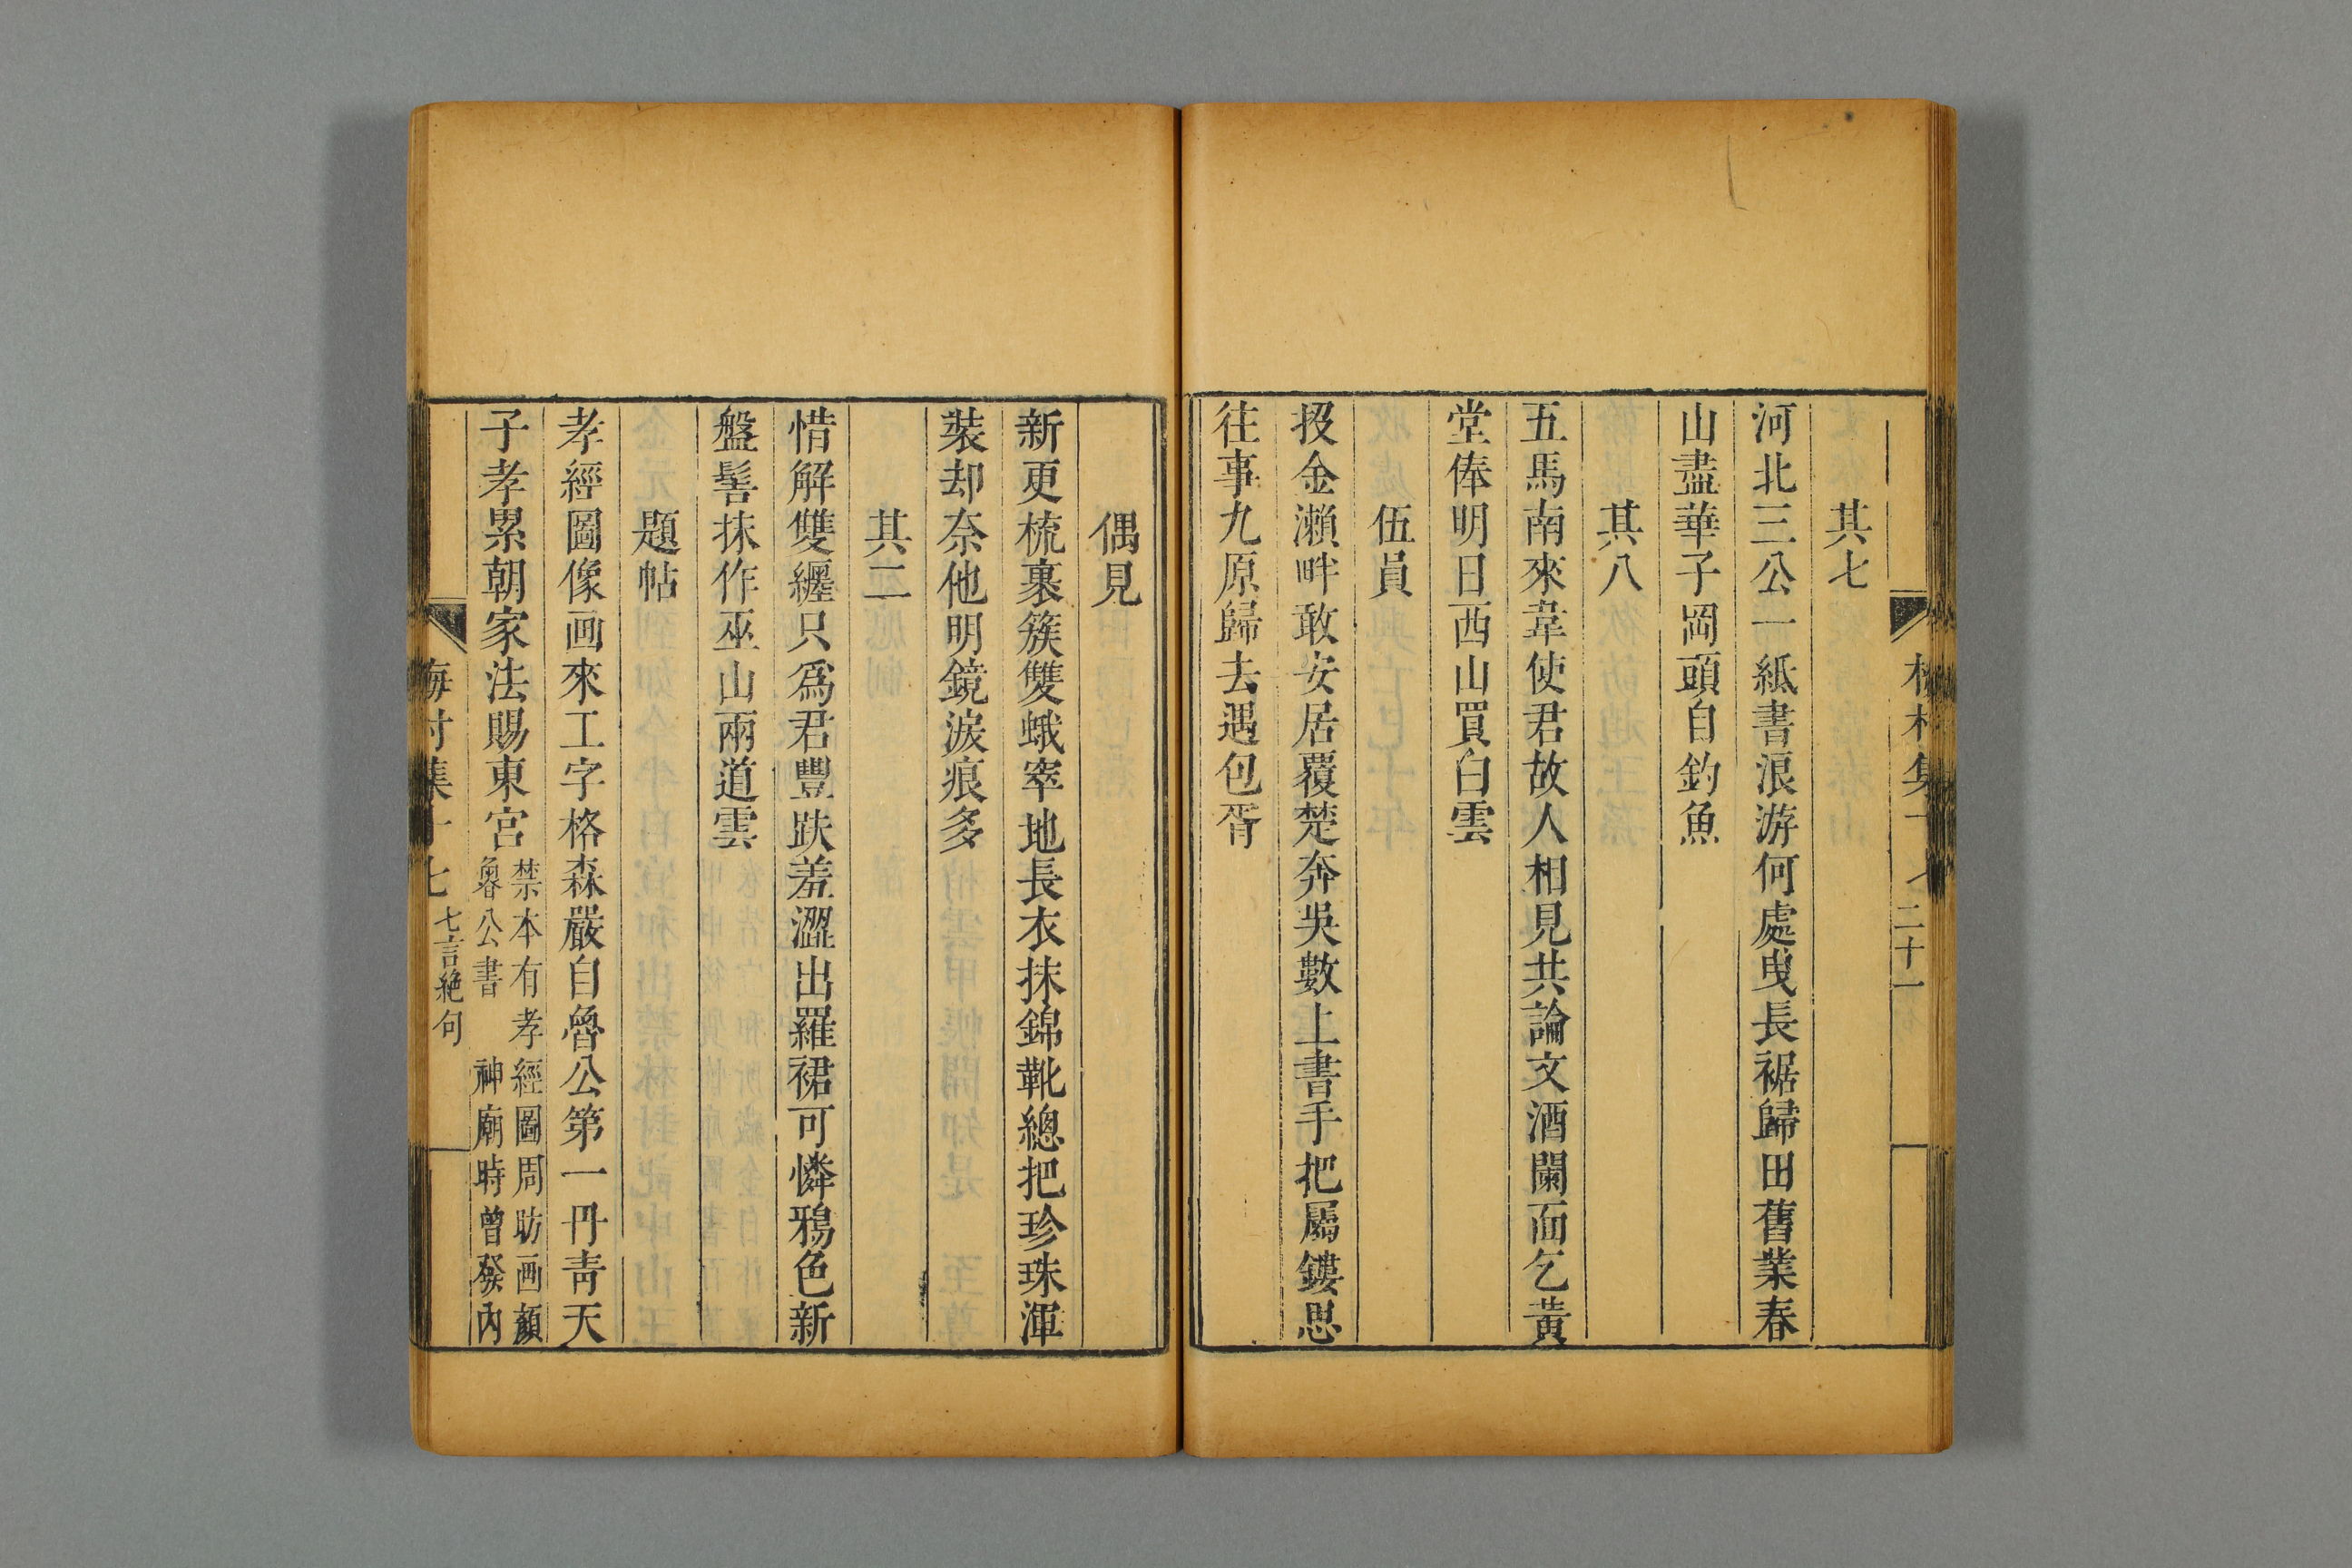 其七
河北三公一紙書浪游何處曳長裾歸田舊業春
山盡華子岡頭自釣魚
其八
五馬南來韋使君故人相見共論文酒闌面乞黃
堂俸明日西山買白雲
伍員
投金瀨畔敢安居覆楚奔吳數上書手把屬鏤思
往事九原歸去遇包胥
二十一
偶見
新更梳裹簇雙蛾窣地長衣抹錦靴總把珍珠渾
裝却奈他明鏡淚痕多
其二
惜解雙纏只爲君豐趺羞澀出羅裙可憐鴉色新
盤髻抹作巫山兩道雲
題帖
孝經圖像画來工字格森嚴自魯公第一丹青天
子孝累朝家法賜東宮
禁本有孝經圖周昉画顏
魯公書 神廟時曾發內
梅村集十七 七言絶句